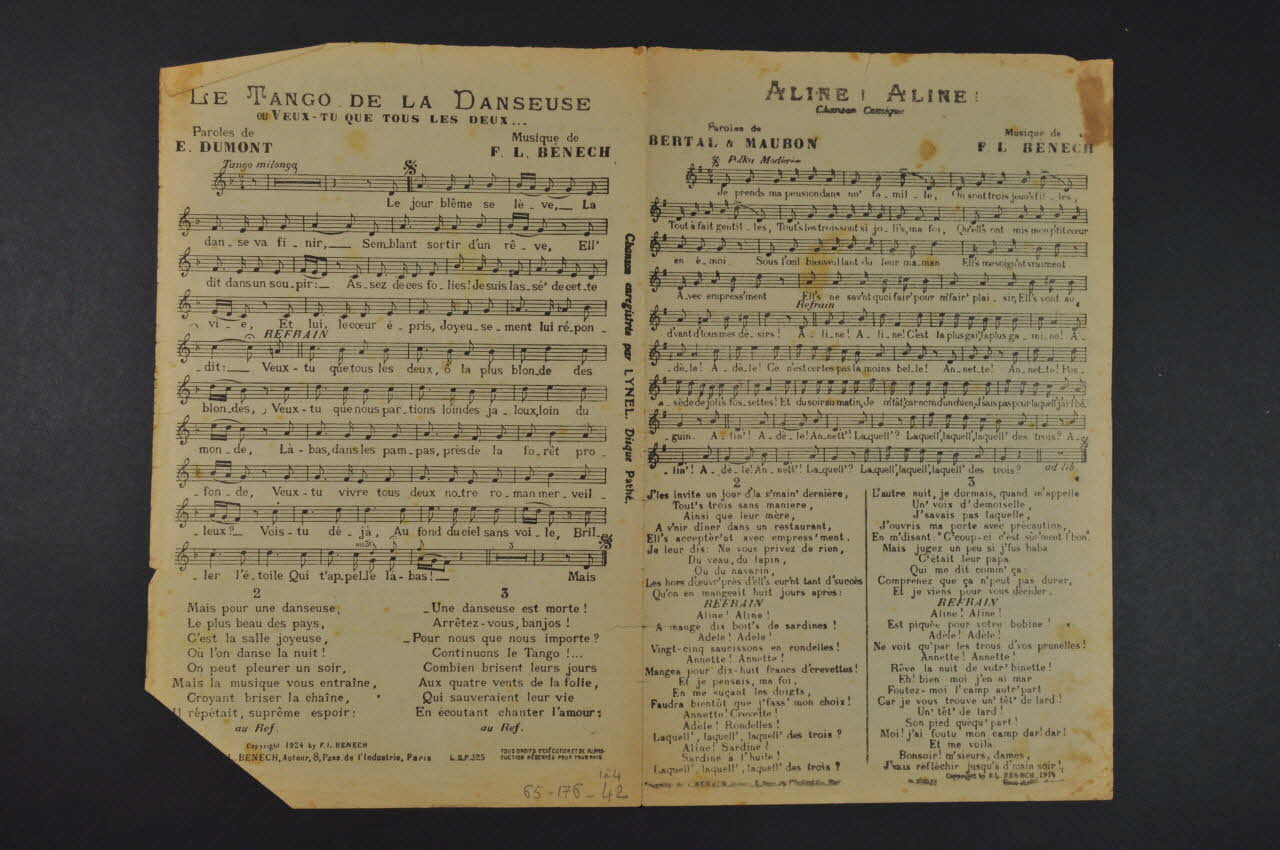 LE TANGO DE LA DANSEUSE
OU VEUX-TU QUE TOUS LES DEUX...
Paroles de
E. DUMONT
Musique de
F. L. BENECH
Tango milonga
Le jour blême se lè_ve,_ La
dan_se va fi_nir,_ Semblant sortir d'un rê_ve, Ell'
dit dans un sou_pir:_ As_sez de ces fo_lies! Je suis las_sé' de cet_te
vi_e, Et lui, le cœur é_pris, Joyeu_se_ment lui ré_pon_
REFRAIN
dit:_ Veux-tu que tous les deux, ô la plus blon_de des
blon_des, Veux-tu que nous par_tions loin des ja_loux, loin du
mon_de, Là-bas, dans les pam_pas, près de la fo_rêt pro_
fon_de, Veux-tu vivre tous deux no_tre ro_man mer_veil_
leux?_ Vois-tu dé_jà, Au fond du ciel sans voi_le, Bril_
ler l'é_toile Qui t'ap_pel_le là-bas!_ Mais
3
2
Mais pour une danseuse,
Le plus beau des pays,
C'est la salle joyeuse,
Où l'on danse la nuit!
On peut pleurer un soir,
Mais la musique vous entraîne,
Croyant briser la chaîne,
Il répétait, suprême espoir:
au Ref.
3
_Une danseuse est morte!
Arrêtez-vous, banjos!
_Pour nous que nous importe?
Continuons le Tango!...
Combien brisent leurs jours
Aux quatre vents de la folie,
Qui sauveraient leur vie
En écoutant chanter l'amour:
au Ref.
Copyright 1924 by F. L. BENECH
L. BENECH, Auteur, 8, Pass. de l'Industrie, Paris
L.B.P. 325
TOUS DROITS D'EXÉCUTION ET DE REPRODUCTION RÉSERVÉS POUR TOUS PAYS
65-176-42
Chanson enregistrée par LYNEL. Disque Pathé.
ALINE! ALINE!
Chanson Comique
Paroles de
BERTAL & MAUBON
Musique de
F. L BENECH
Polka Modérée
Je prends ma pension dans un' fa_mil_le, Où sont trois jeun's fil_les,
Tout à fait gentil_les, Tout's les trois sont si jo_li's, ma foi, Qu'ell's ont mis mon p'tit cœur
en é_moi. Sous l'œil bienveillant du leur ma_man Ell's me soign'nt vraiment
Avec empress'ment Ell's ne sav'nt quoi fair' pour m'fair' plai_sir, Ell's vont au
Refrain
d'vant d'tous mes dé_sirs! A_line! A_li_ne! C'est la plus gai', la plus ga_mi_ne! A_
dè_le! A_dè_le! Ce n'est certes pas la moins bel_le! An_net_te! An_net_te! Pos_
sè de de jolis fos_settes! Et du soir au matin, Je m'tât', car nom d'un chien, J'sais pas pour laquell' j'ai l'bé_
guin. A_lin'! A_dè_le! An_nett'! Laquell'? Laquell', laquell', laquell' des trois? A_
_lin'! A_dè_le! An_nett'! La_quell'? Laquell', laquell', laquell' des trois?
ad lib.
2
J'les invite un jour d'la s'main' dernière,
Tout's trois sans manière,
Ainsi que leur mère,
A v'nir dîner dans un restaurant,
Ell's accept'er'nt avec empress'ment.
Je leur dis: Ne vous privez de rien,
Du veau, du lapin,
Ou du navarin,
Les hors d'œuvr' près d'ell's eur'nt tant d'succès
Qu'on en mangeait huit jours après:
REFRAIN
Aline! Aline!
A mangé dix boit's de sardines!
Adèle! Adèle!
Vingt-cinq saucissons en rondelles!
Annette! Annette!
Mangea pour dix-huit francs d'crevettes!
Et je pensais, ma foi,
En me suçant les doigts,
Faudra bientôt que j'fass' mon choix!
Annette! Crevette!
Adèle! Rondelles!
Laquell', laquell', laquell' des trois?
Aline! Sardine!
Sardine à l'huile!
Laquell', laquell', laquell' des trois?
3
L'autre nuit, je dormais, quand m'appelle
Un' voix d'demoiselle,
J'savais pas laquelle,
J'ouvris ma porte avec précaution,
En m'disant: "C'coup-ci c'est sûr'ment l'bon".
Mais jugez un peu si j'fus baba
C'était leur papa
Qui me dit comm' ça:
Comprenez que ça n'peut pas durer,
Et je viens pour vous décider.
REFRAIN
Aline! Aline!
Est piquée pour votre bobine!
Adèle! Adèle!
Ne voit qu'par les trous d'vos prunelles!
Annette! Annette!
Rêve la nuit de votr' binette!
Eh! bien moi j'en ai mar
Foutez-moi l'camp autr' part
Car je vous trouve un' têt' de lard!
Un' têt' de lard!
Son pied quéqu' part!
Moi! j'ai foutu mon camp dar! dar!
Et me voilà
Bonsoir! m'sieurs, dames,
J'vais réfléchir jusqu'à d'main soir!
Copyright by F. L. BENECH, 1925